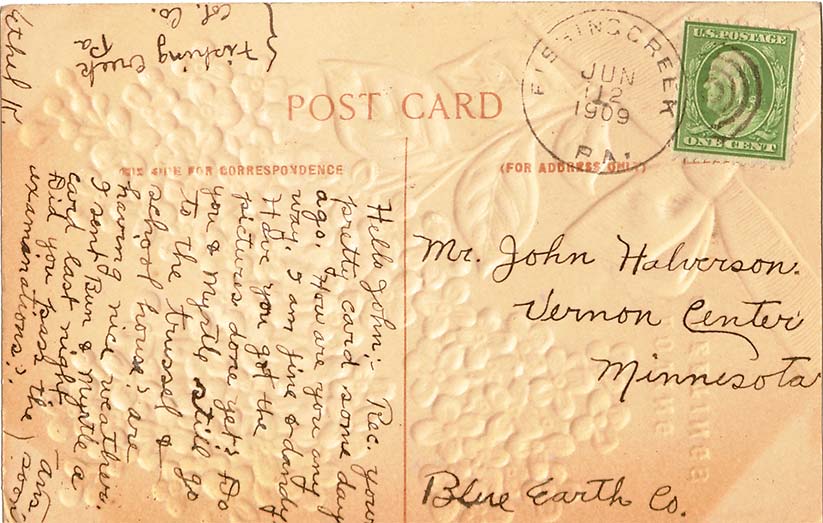 POST CARD
THIS SIDE FOR CORRESPONDENCE
(FOR ADDRESS ONLY)
FISHINGCREEK
JUN
12
1909
PA.
U.S. POSTAGE
ONE CENT
Mr. John Halverson.
Vernon Center
Minnesota
Blue Earth Co.
Hello John:- Rec. your
pretty card some day
ago. How are you any
way. I am fine & dandy
Have you got the
pictures done yet? Do
you & Myrtle still go
to the trussel &
school house? are
having nice weather.
I sent Bun & Myrtle a
card last night
Did you pass the
examanations?
Ans
soon
Ethel K.
Fishing Creek
Pa
Col. Co.